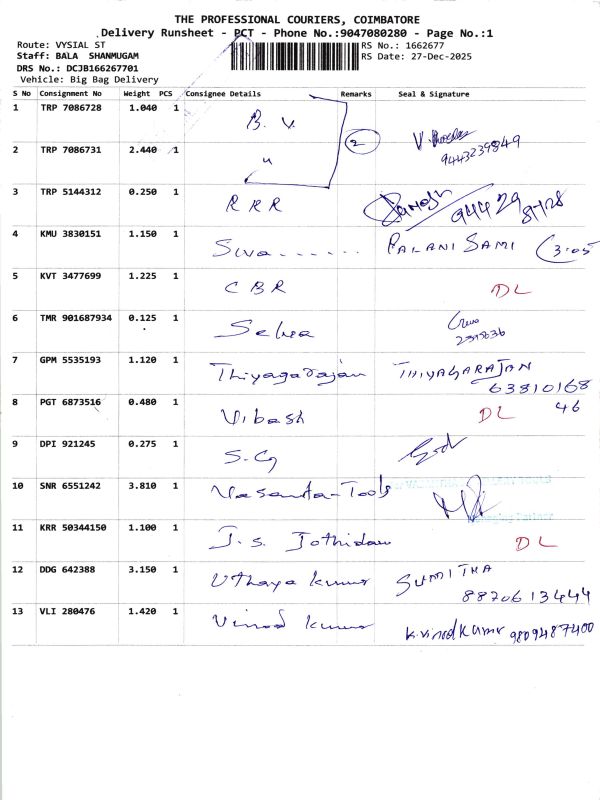 THE PROFESSIONAL COURIERS, COIMBATORE
Delivery Runsheet - PCT - Phone No.:9047080280 - Page No.:1
Route: VYSIAL ST
RS No.: 1662677
Staff: BALA SHANMUGAM
RS Date: 27-Dec-2025
DRS No.: DCJB166267701
Vehicle: Big Bag Delivery
S No Consignment No Weight PCS Consignee Details Remarks Seal & Signature
1 TRP 7086728 1.040 1 B. V.
2 TRP 7086731 2.440 1 " 2 9443239849
3 TRP 5144312 0.250 1 R R R 94429
4 KMU 3830151 1.150 1 Siva....... PALANI SAMI 3:05
5 KVT 3477699 1.225 1 C B R DL
6 TMR 901687934 0.125 1 Selva
7 GPM 5535193 1.120 1 Thiyagarajan THIYAGARAJAN
63810168
46
8 PGT 6873516 0.480 1 Vibash DL
9 DPI 921245 0.275 1 S. G
10 SNR 6551242 3.810 1 Vasanta-Tools
11 KRR 50344150 1.100 1 J. S. Jothidam DL
12 DDG 642388 3.150 1 Uthaya kumar SUMITHA
8870613444
13 VLI 280476 1.420 1 Vinod kumar k.vinod kumar 9809487400